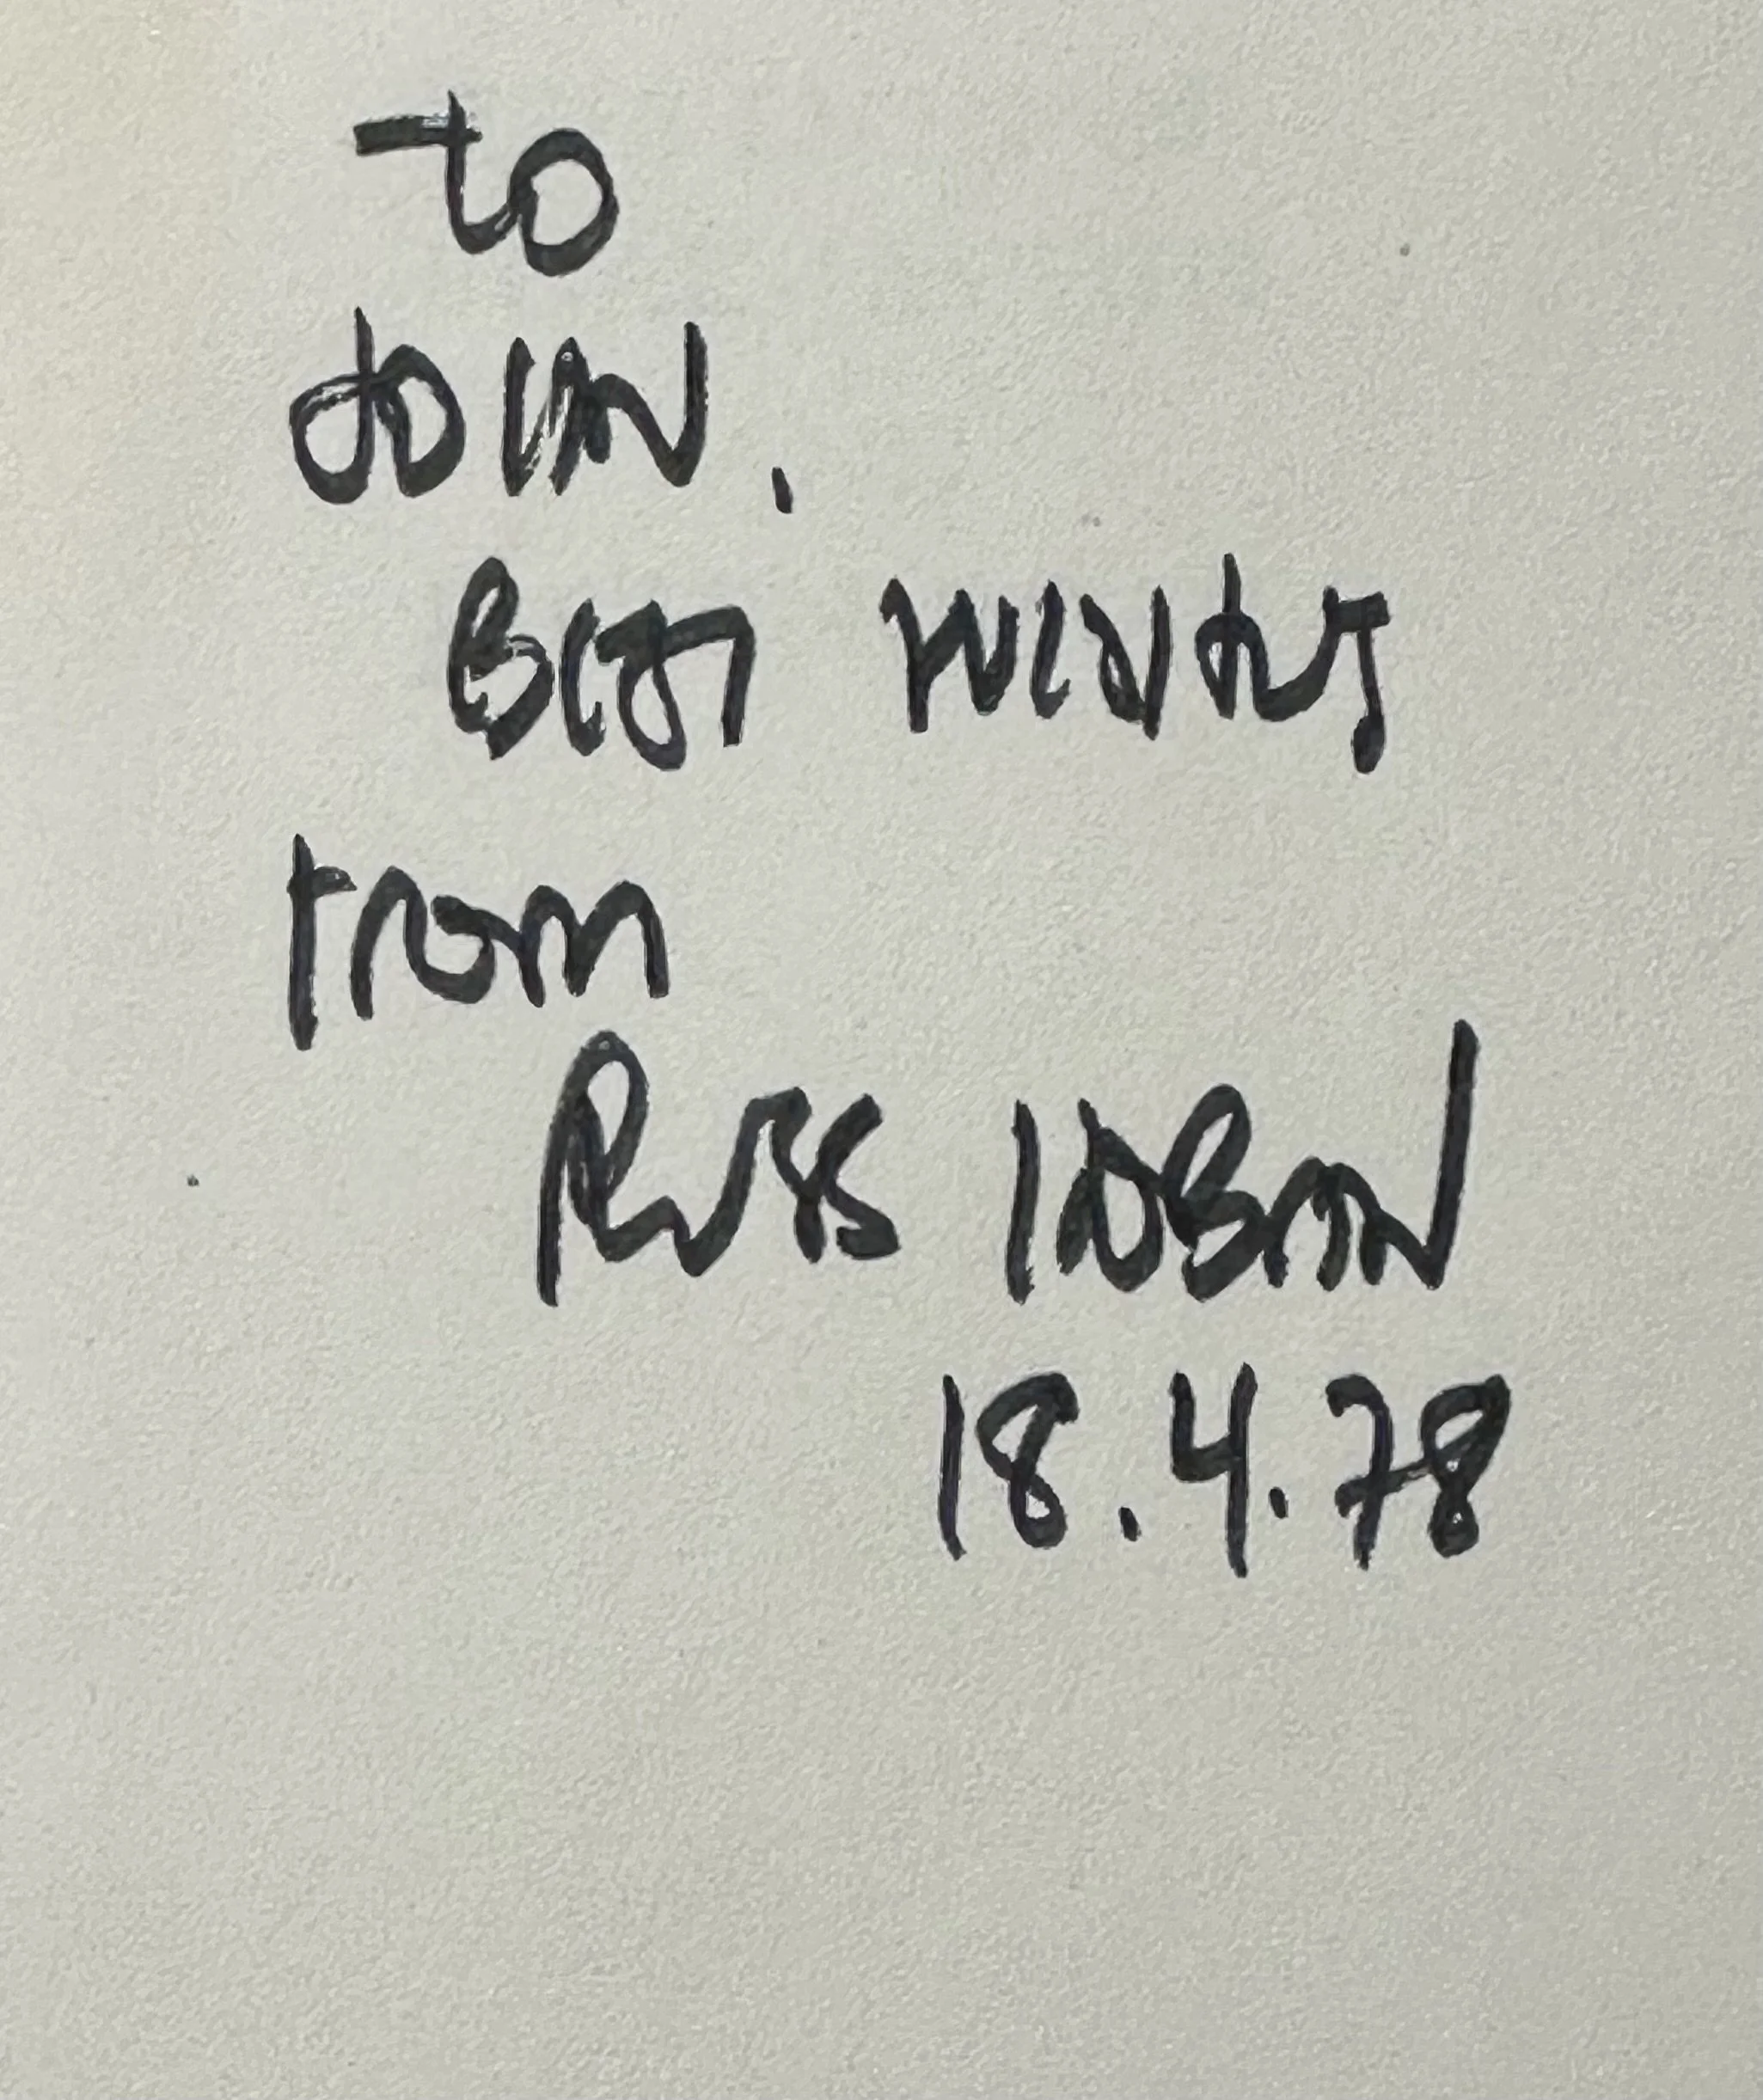 to
John.
Best wishes
from
Russ Hoban
18.4.78